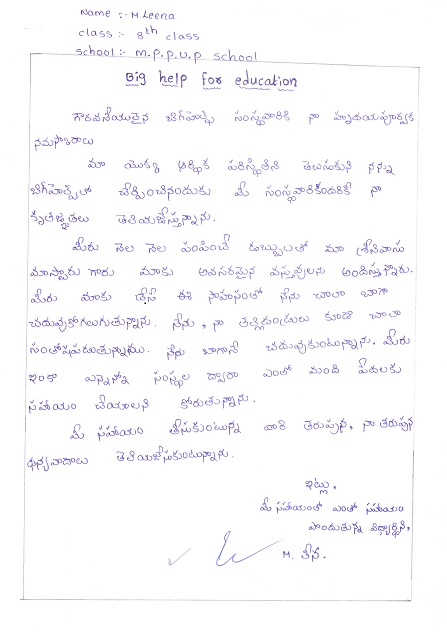 Name :- M.Leena
class :- 8th class
school :- M.P.P.U.P school
Big help for education
గౌరవనీయులైన బిగ్‌హెల్ప్ సంస్థవారికి నా హృదయపూర్వక
నమస్కారాలు
మా యొక్క ఆర్థిక పరిస్థితిని తెలుసుకుని నన్ను
బిగ్‌హెల్ప్‌లో చేర్పించినందుకు మీ సంస్థవారికందరికీ నా
కృతజ్ఞతలు తెలియజేస్తున్నాను.
మీరు నెల నెల పంపించే డబ్బులతో మా శ్రీనివాసు
మాస్టారు గారు మాకు అవసరమైన వస్తువులను అందిస్తున్నారు.
మీరు మాకు చేసే ఈ సాహసంతో నేను చాలా బాగా
చదువుకోగలుగుతున్నాను. నేను, నా తల్లిదండ్రులు కూడా చాలా
సంతోషపడుతున్నాము. నేను బాగానే చదువుకుంటున్నాను. మీరు
ఇంకా ఎన్నెన్నో సంస్థల ద్వారా ఎంతో మంది పేదలకు
సహాయం చేయాలని కోరుతున్నాను.
మీ సహాయం తీసుకుంటున్న వారి తరుపున, నా తరుపున
ధన్యవాదాలు తెలియజేసుకుంటున్నాను.
ఇట్లు,
మీ సహాయంతో ఎంతో సహాయం
పొందుతున్న విద్యార్థిని,
M. లీన.